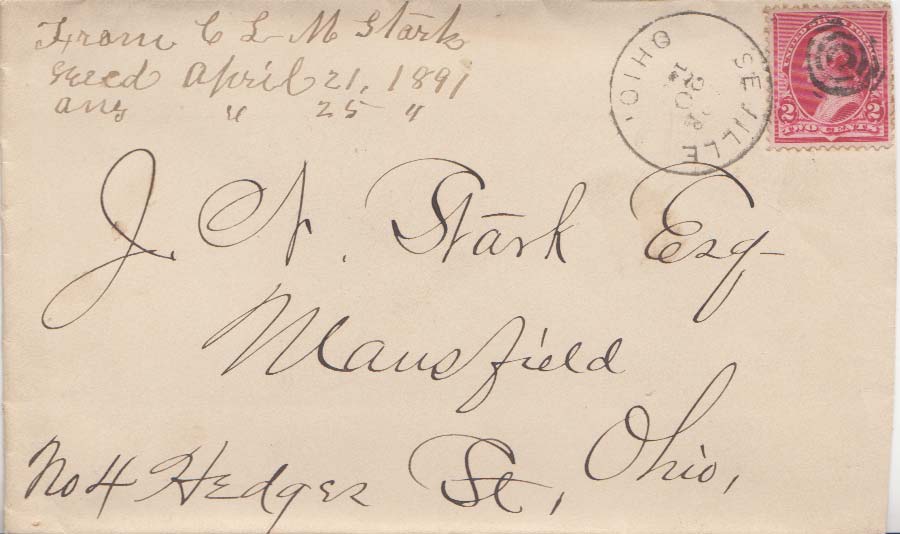 From C L M Stark
Recd April 21, 1891
ans " 25 "
SE ILLE
OHIO.
20
UNITED STATES POSTAGE
2 2
TWO CENTS
J. N. Stark Esq
Mansfield
Ohio,
No 4 Hedges St,